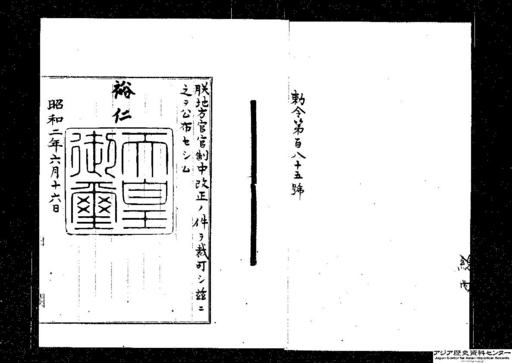 勅令第百八十五號
朕地方官官制中改正ノ件ヲ裁可シ茲ニ
之ヲ公布セシム
裕仁
天皇御璽
昭和二年六月十六日
アジア歴史資料センター
Japan Center for Asian Historical Records